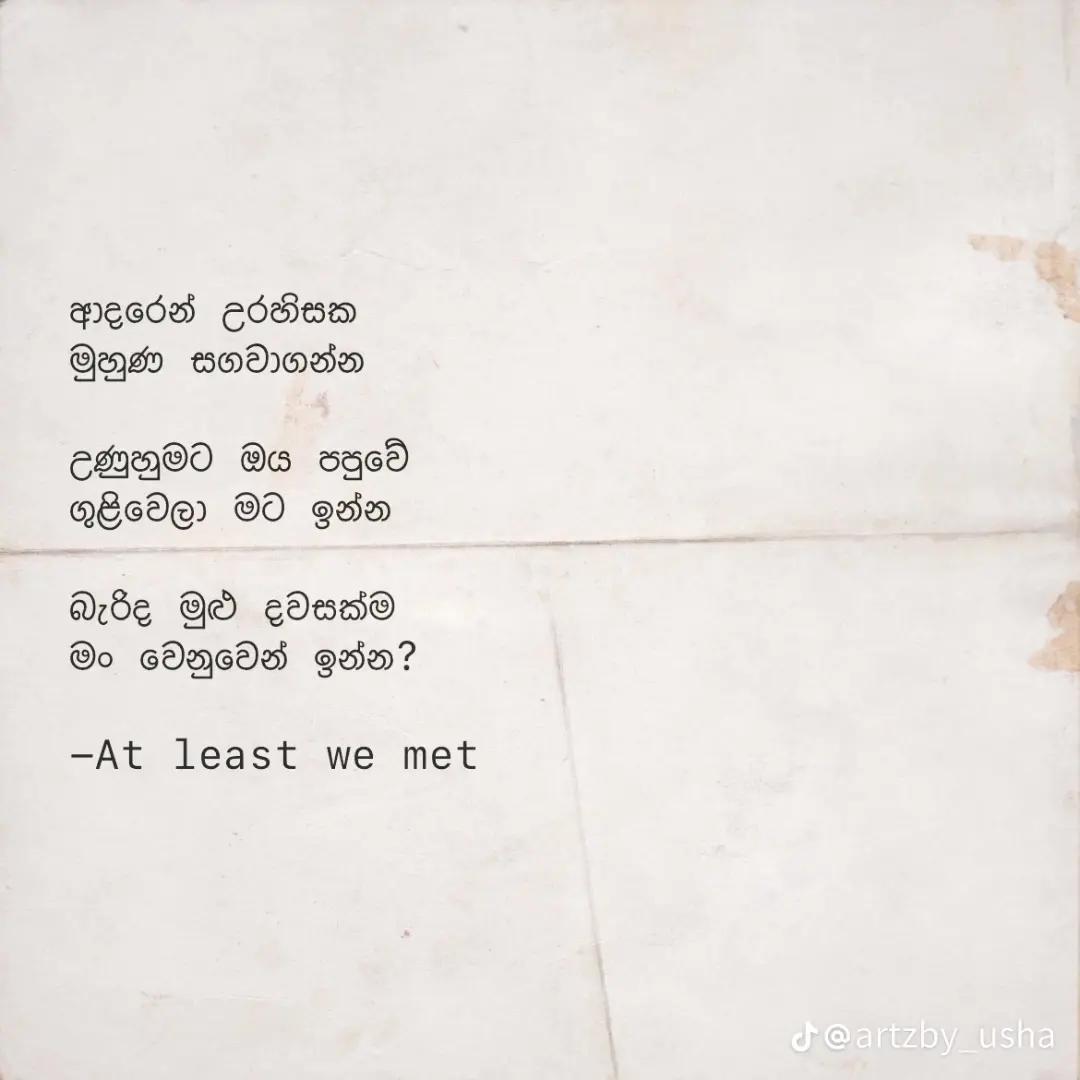 ආදරෙන් උරහිසක
මුහුණ සගවාගන්න
උණුහුමට ඔය පපුවේ
ගුළිවෙලා මට ඉන්න
බැරිද මුළු දවසක්ම
මං වෙනුවෙන් ඉන්න?
—At least we met
@artzby_usha